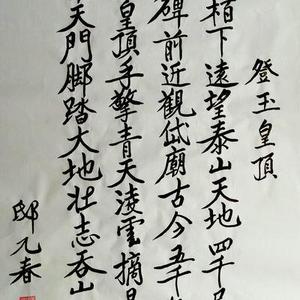 登玉皇頂
栢下遠望泰山天地四千
碑前近觀岱廟古今五千
皇頂手擎青天淩雲摘
天門脚踏大地壯志吞山
邸元春